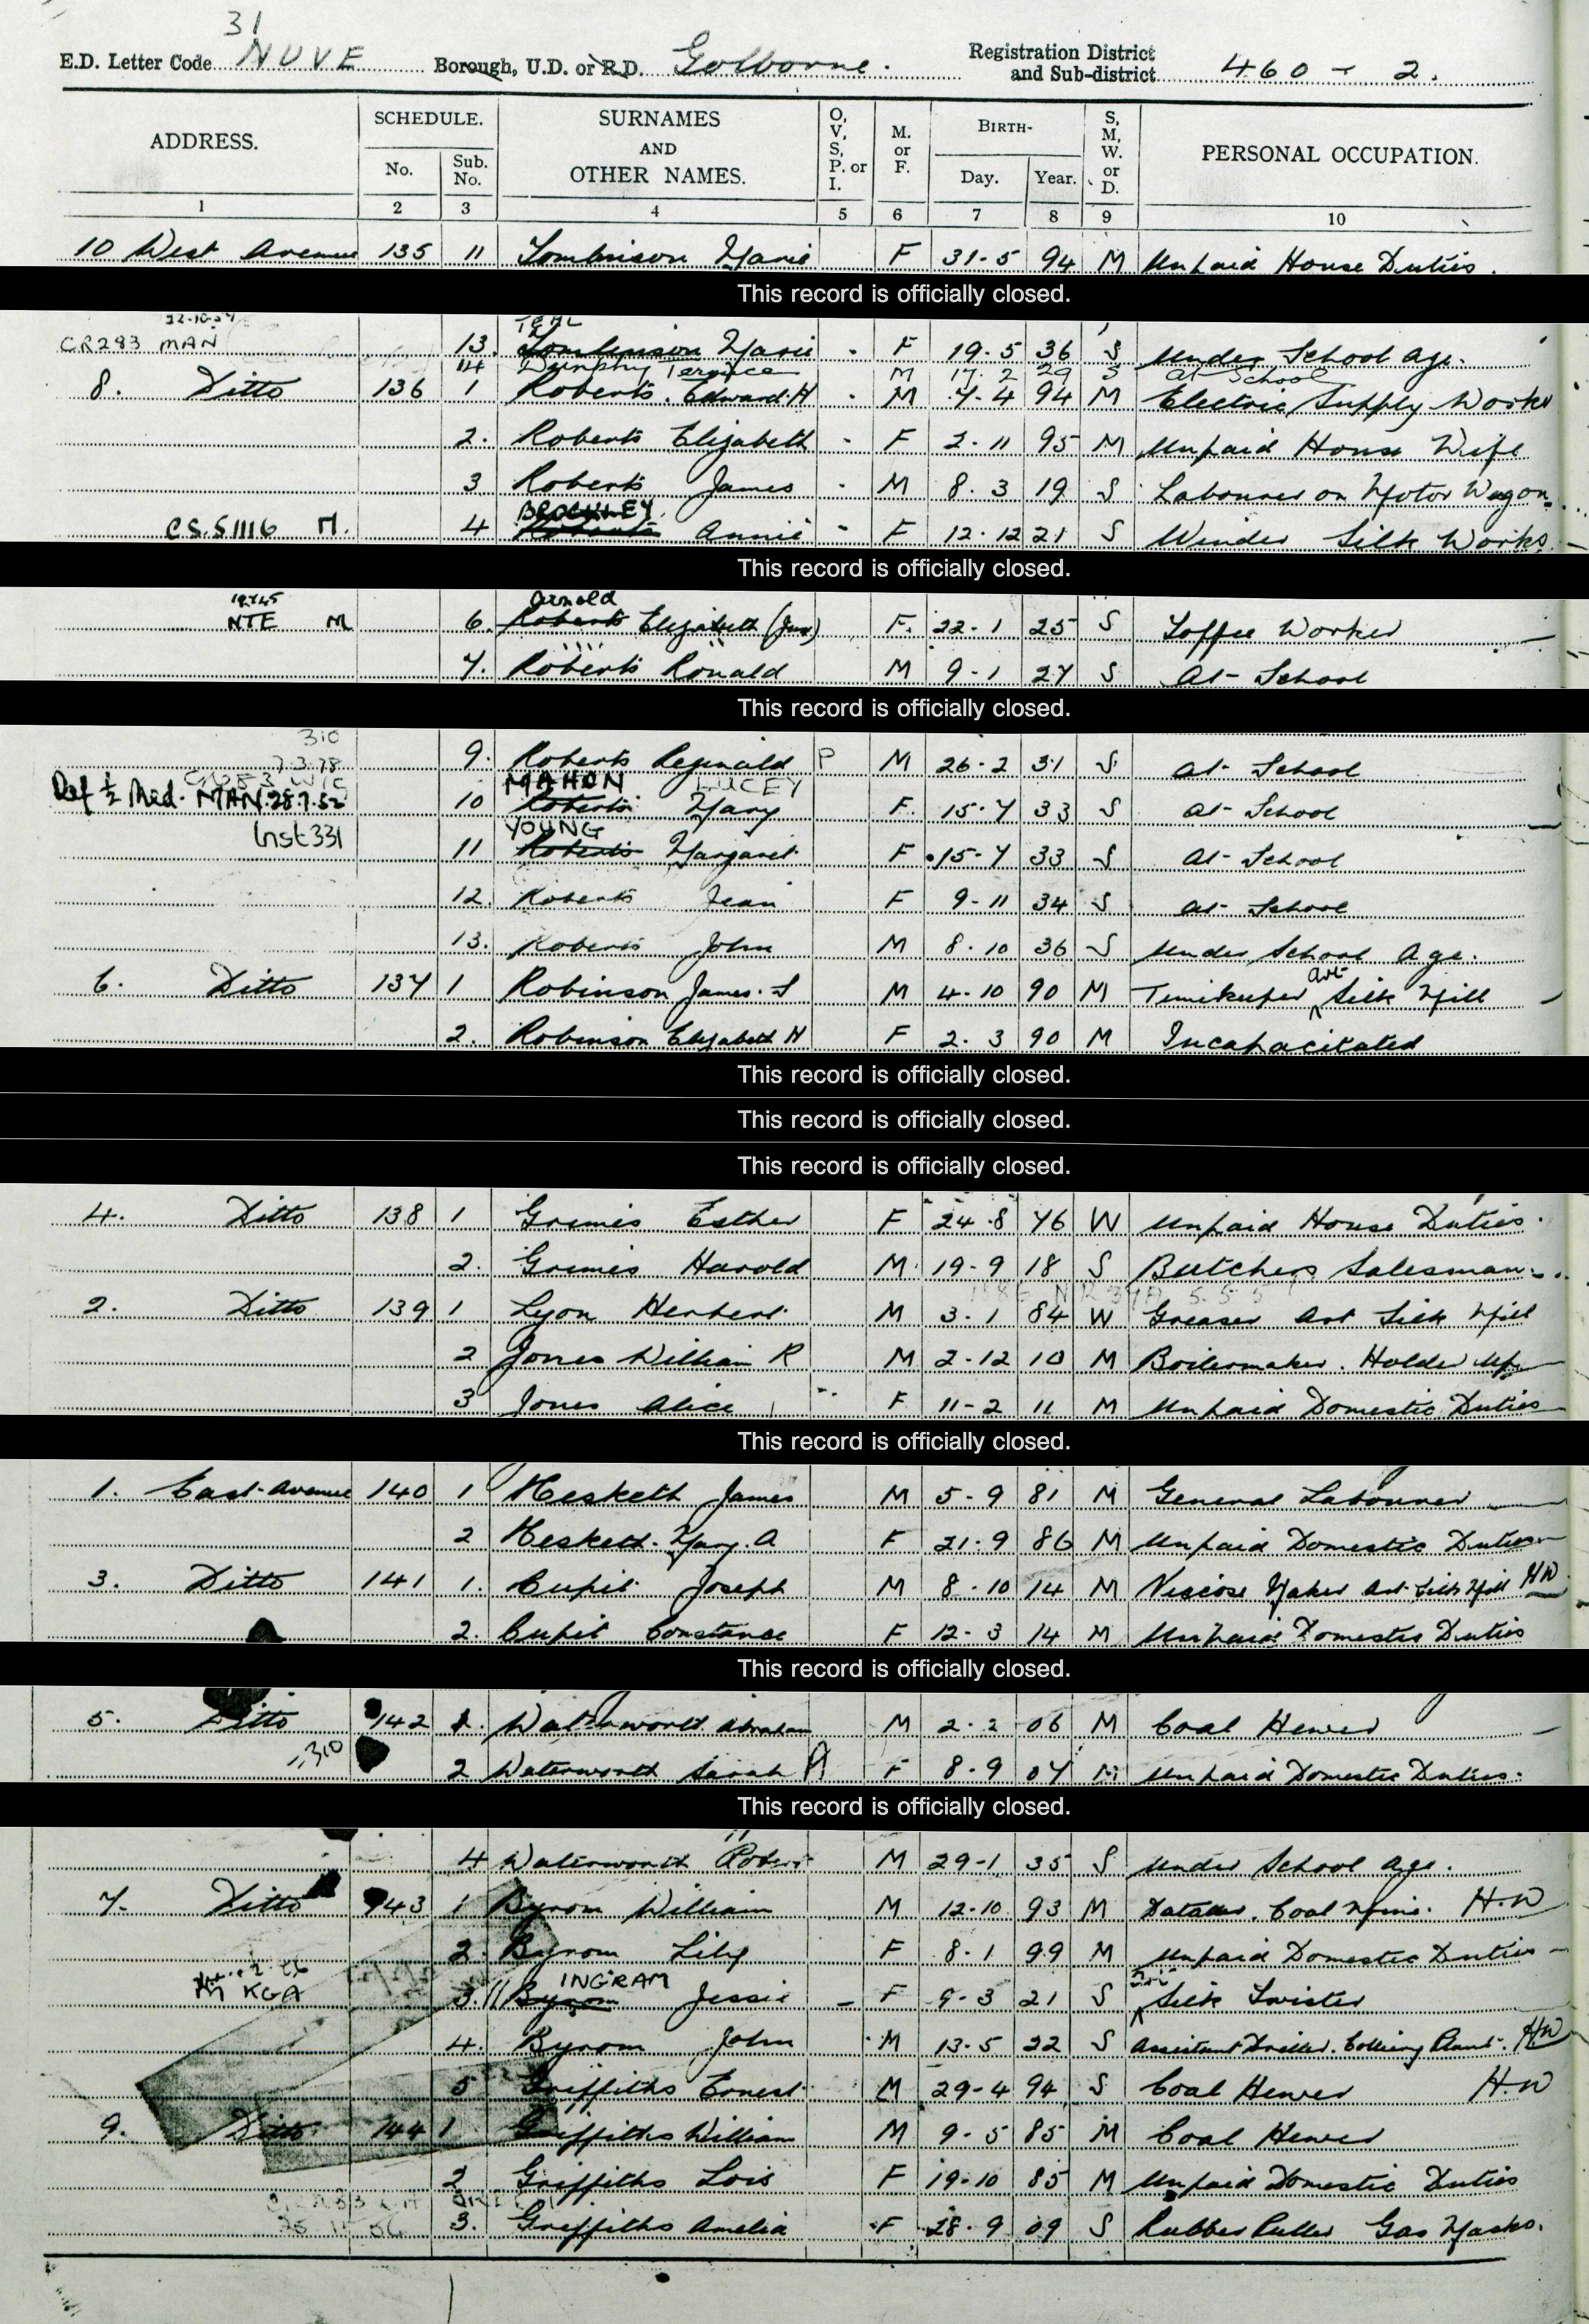 31
E.D. Letter Code NUVE Borough, U.D. or R.D. Golborne. Registration District and Sub-district 460 - 2.
ADDRESS. SCHEDULE. No. Sub. No. SURNAMES AND OTHER NAMES. O, V, S, P. or I. M. or F. BIRTH- Day. Year. S, M, W. or D. PERSONAL OCCUPATION.
1 2 3 4 5 6 7 8 9 10
10 West Avenue 135 11 Tomlinson Marie F 31-5 94 M Unpaid House Duties.
This record is officially closed.
22-10-54 TEAL
CR283 MAN 13. Tomlinson Marie - F 19-5 36 S Under School Age.
14 Dunphy Terence M 17.2 29 S at School
8. Ditto 136 1 Roberts. Edward. H - M 7-4 94 M Electric Supply Works
2. Roberts Elizabeth - F 2-11 95 M Unpaid House Wife
3 Roberts James - M 8.3 19 S Labourer on Motor Wagon.
BROCKLEY
C.S.51116 M. 4 Roberts Annie - F 12.12 21 S Winder Silk Works.
This record is officially closed.
Arnold
NTE M 6. Roberts Elizabeth (Jun) F. 22-1 25 S Toffee Worker
7. Roberts Ronald M 9-1 27 S At-School
This record is officially closed.
310
7.3.78 9. Roberts Reginald P M 26-2 31 S at-School
MAHON LUCEY
Ref ½ Med. MAN.28.7.52 10 Roberts Mary F. 15-7 33 S at-School
YOUNG
Inst 331 11 Roberts Margaret F 15-7 33 S At-School
12. Roberts Jean F 9-11 34 S at-School
13. Roberts John M 8.10 36 S Under School Age.
art
6. Ditto 137 1 Robinson James. M 4-10 90 M Timekeeper Silk Mill
2. Robinson Elizabeth H F 2.3 90 M Incapacitated
This record is officially closed.
This record is officially closed.
This record is officially closed.
4. Ditto 138 1 Grimes Esther F 24.8 76 W Unpaid House Duties.
2. Grimes Harold M. 19-9 18 S Butchers Salesman
2. Ditto 139 1 Lyon Herbert M 3.1 84 W Greaser Art Silk Mill
2 Jones William R M 2-12 10 M Boilermaker. Holder Up
3 Jones Alice F 11-2 11 M Unpaid Domestic Duties
This record is officially closed.
1. East-Avenue 140 1 Hesketh James M 5-9 81 M General Labourer
2 Hesketh. Mary. A F 21.9 86 M Unpaid Domestic Duties
3. Ditto 141 1. Cupit Joseph M 8-10 14 M Viscose Maker Art-Silk Mill HW
2. Cupit Constance F 12-3 14 M Unpaid Domestic Duties
This record is officially closed.
5. Ditto 142 1. Waterworth Abraham M 2.2 06 M Coal Hewer
310 2 Waterworth Sarah A F 8-9 07 M Unpaid Domestic Duties.
This record is officially closed.
4 Waterworth Robert M 29-1 35 S Under School Age.
7. Ditto 143 1 Byrom William M 12-10 93 M Dataller. Coal Mine. H.W
2. Byrom Lily F 8-1 99 M Unpaid Domestic Duties
INGRAM
KGA 3. Byrom Jessie - F 9-3 21 S Silk Twister
4. Byrom John M 13.5 22 S Assistant Driller. Colliery Plant. HW
5 Griffiths Ernest M 29-4 94 S Coal Hewer H.W
9. Ditto 144 1 Griffiths William M 9-5 85 M Coal Hewer
2 Griffiths Lois F 19-10 85 M Unpaid Domestic Duties
3. Griffiths Amelia F 28.9 09 S Rubber Puller Gas Masks.